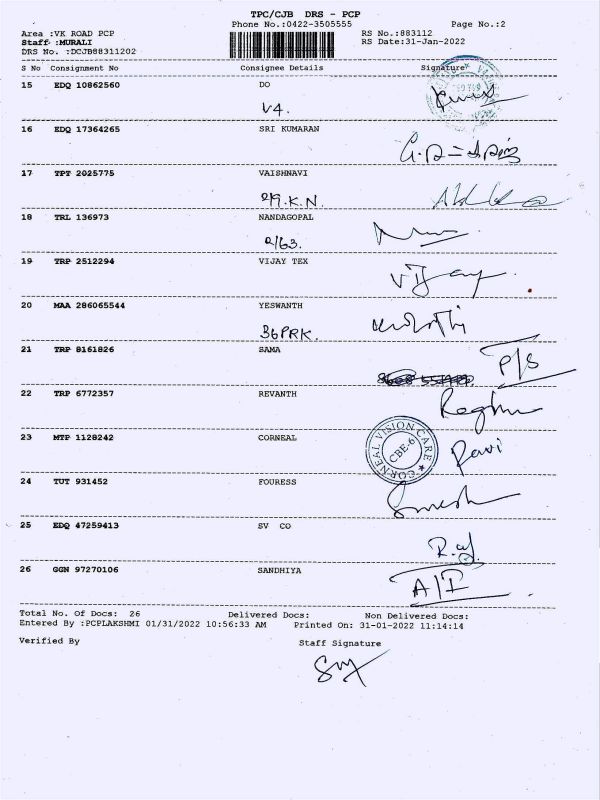 TPC/CJB DRS - PCP
Phone No.:0422-3505555 Page No.:2
Area :VK ROAD PCP RS No.:883112
Staff :MURALI RS Date:31-Jan-2022
DRS No. :DCJB88311202
S No Consignment No Consignee Details Signature
15 EDQ 10862560 DO
V4.
16 EDQ 17364265 SRI KUMARAN
17 TPT 2025775 VAISHNAVI
2/9.K.N.
18 TRL 136973 NANDAGOPAL
2/63.
19 TRP 2512294 VIJAY TEX
Vijay.
20 MAA 286065544 YESWANTH
36PRK.
21 TRP 8161826 SAMA
P/S
22 TRP 6772357 REVANTH
Raghu
23 MTP 1128242 CORNEAL
CORNEAL VISION CARE
CBE-6
Ravi
24 TUT 931452 FOURESS
Suresh
25 EDQ 47259413 SV CO
26 GGN 97270106 SANDHIYA
A/I
Total No. Of Docs: 26 Delivered Docs: Non Delivered Docs:
Entered By :PCPLAKSHMI 01/31/2022 10:56:33 AM Printed On: 31-01-2022 11:14:14
Verified By Staff Signature